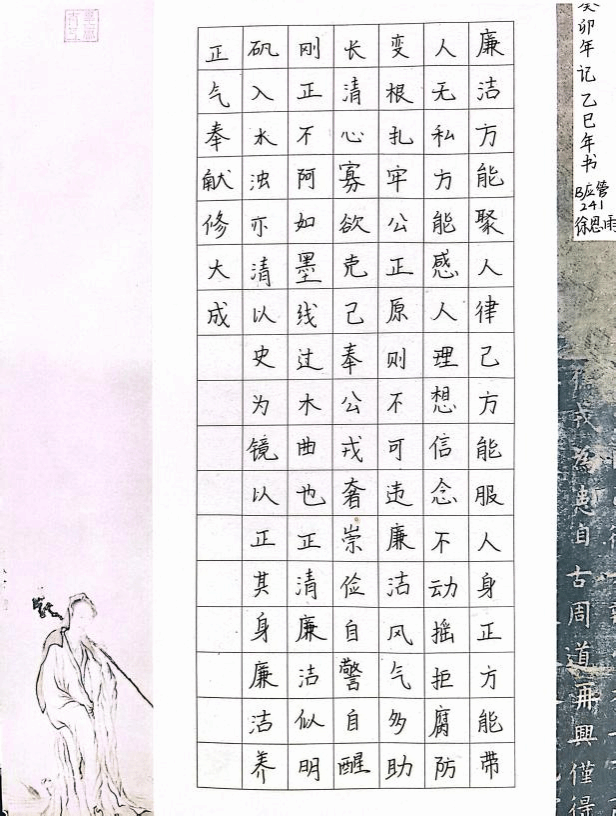 癸卯年记乙巳年书
B应管
241
徐思雨
廉洁方能聚人律己方能服人身正方能带
人无私方能感人理想信念不动摇拒腐防
变根扎牢公正原则不可违廉洁风气多助
长清心寡欲克己奉公戒奢崇俭自警自醒
刚正不阿如墨线过木曲也正清廉洁似明
矾入水浊亦清以史为镜以正其身廉洁养
正气奉献修大成
戎為患自古周道再興僅得